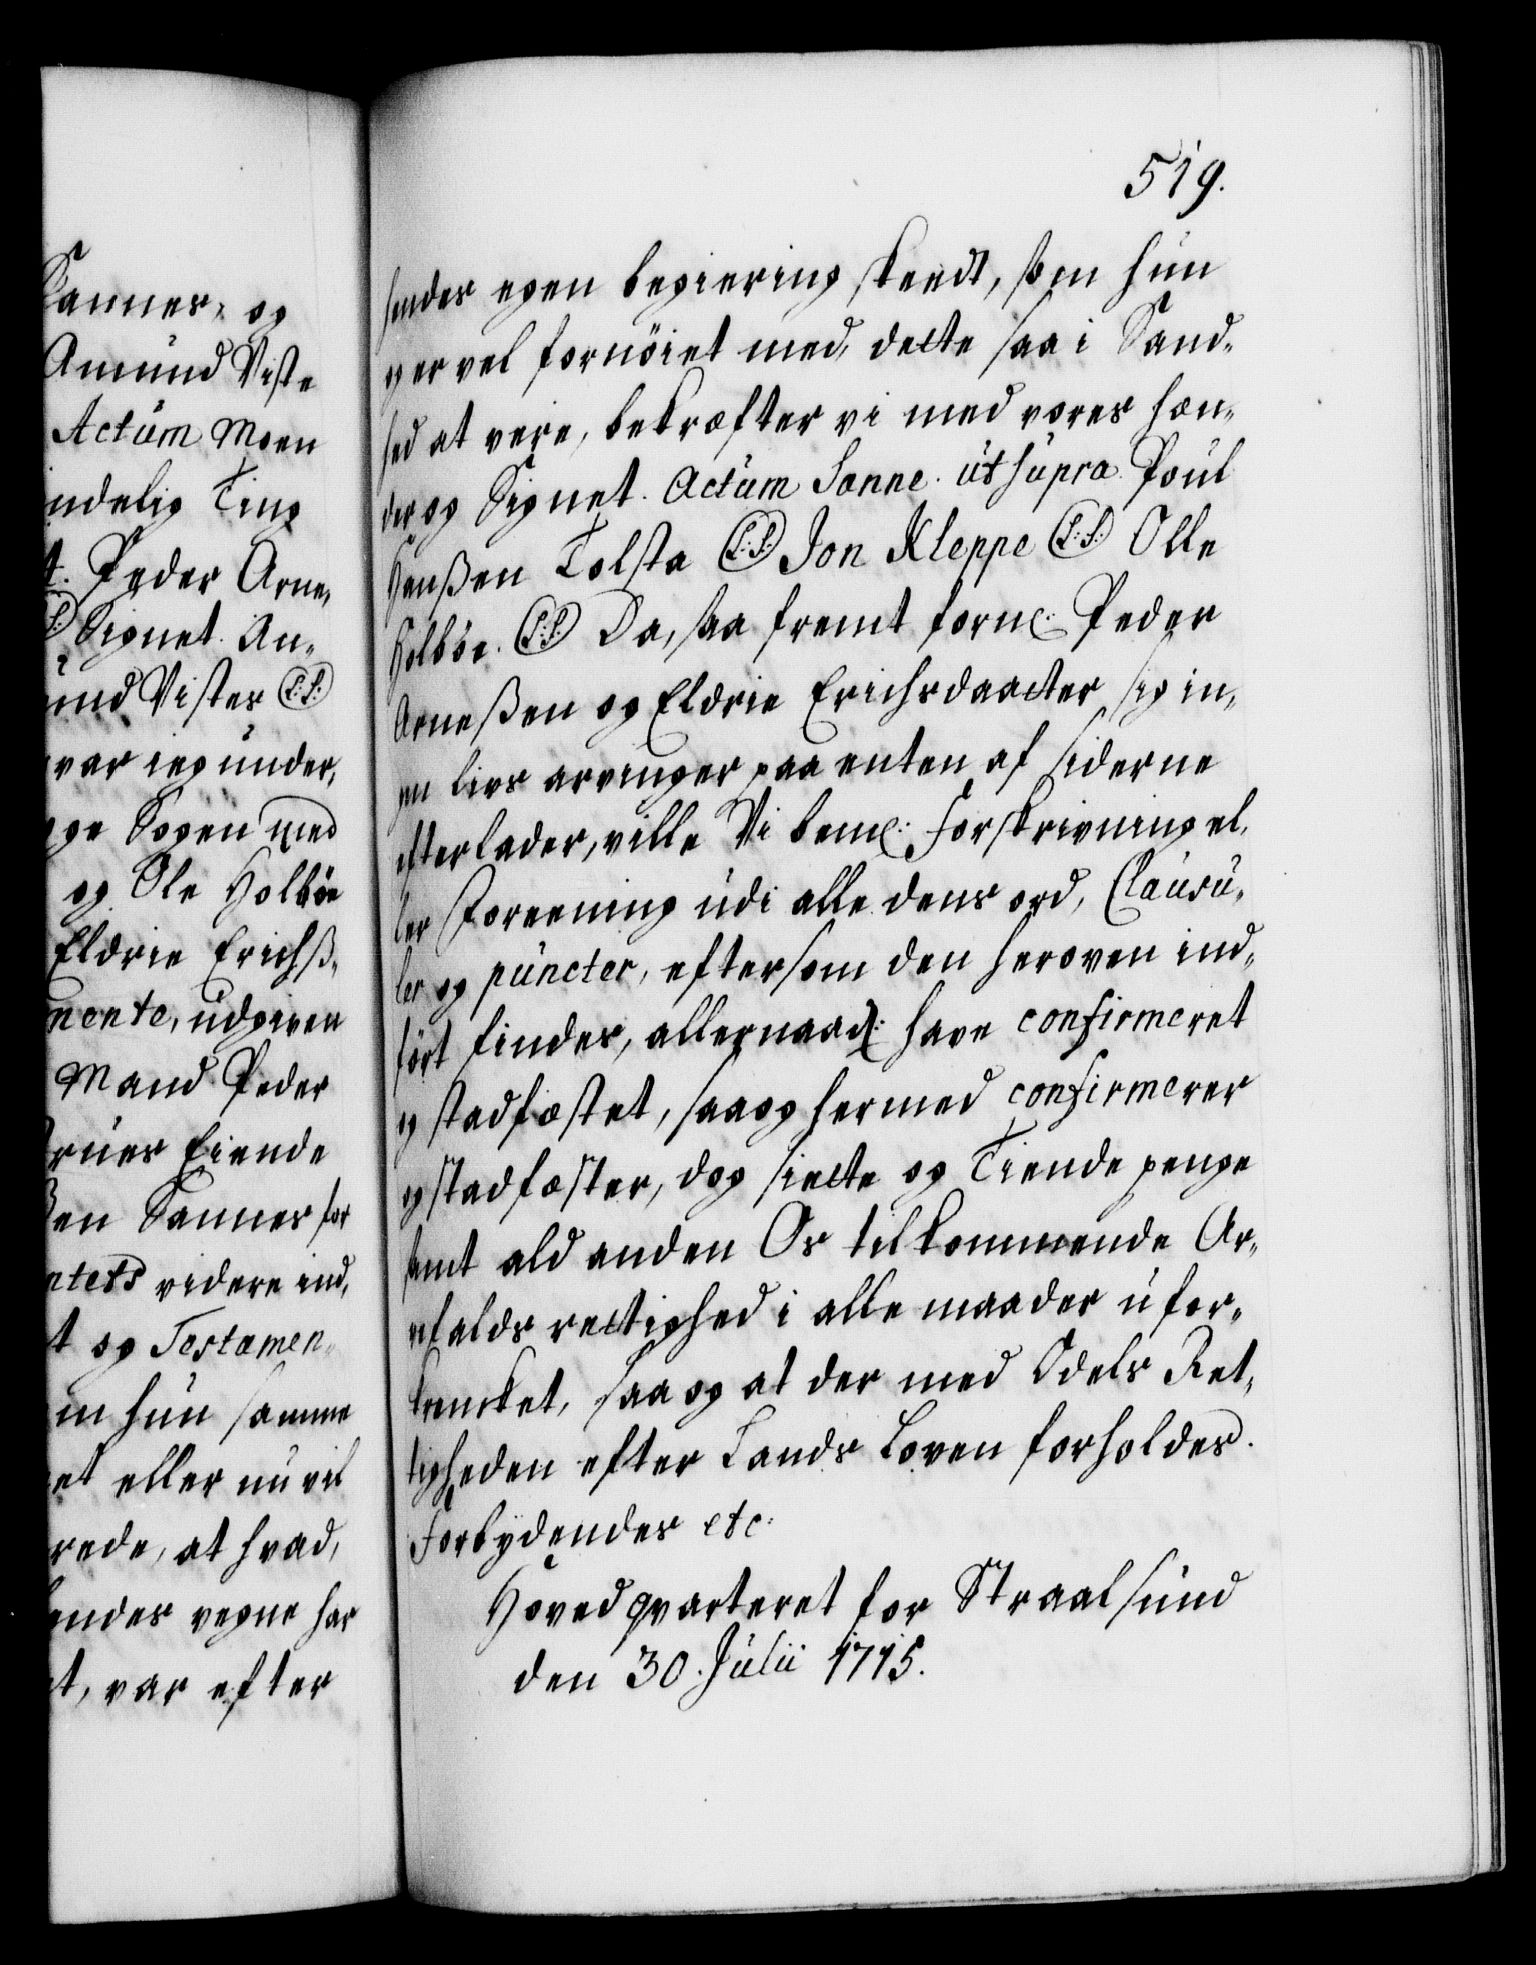 Sanner, og
Amund Viste
Actum Moen
indelig Ting
t. Peder Arne,
S:) Signet. An„
und Vister (L:S:)
var ieg under,
ge Sogen med
og Ole Holböe
Eldrie Erichß„
mente, udgiven
Mand Peder
Trues Eiende
ßen Sanner for
ntets videre ind,
t og Testamen„
m hun samme
et eller nu vil
rede, at hvad,
endes vegne har
t, var efter
519.
hendes egen begiering skeedt, som hun
og er vel fornöiet med, dette saa i Sand„
hed at vere, bekræfter vi med vores hæn„
der og Signet. Actum Sanne. ut supra. Poul
Hanßen Tolsta (L:S:) Jon Kleppe (L:S:) Olle
Holböe. (L:S:) Da, saa fremt forne: Peder
Arneßen og Eldrie Erichsdaatter sig in„
gen livs arvinger paa enten af siderne
efterlader, ville Vi bemte: Forskrivning el,
ler Foreening udi alle dens ord, Clausu„
ler og puncter, eftersom den heroven ind„
fört findes, allernaad: have confirmeret
og stadfæstet, saa og hermed confirmerer
og stadfæster, dog siette og Tiende penge
samt ald anden Os tilkommende Ar„
vefalds rettighed i alle maader ufor„
krencket, saa og at der med Odels Ret„
tigheden efter Lands Loven forholdes.
Forbydendes etc:
Hoved qvarteret for Straalsund
den 30. Julii 1715.